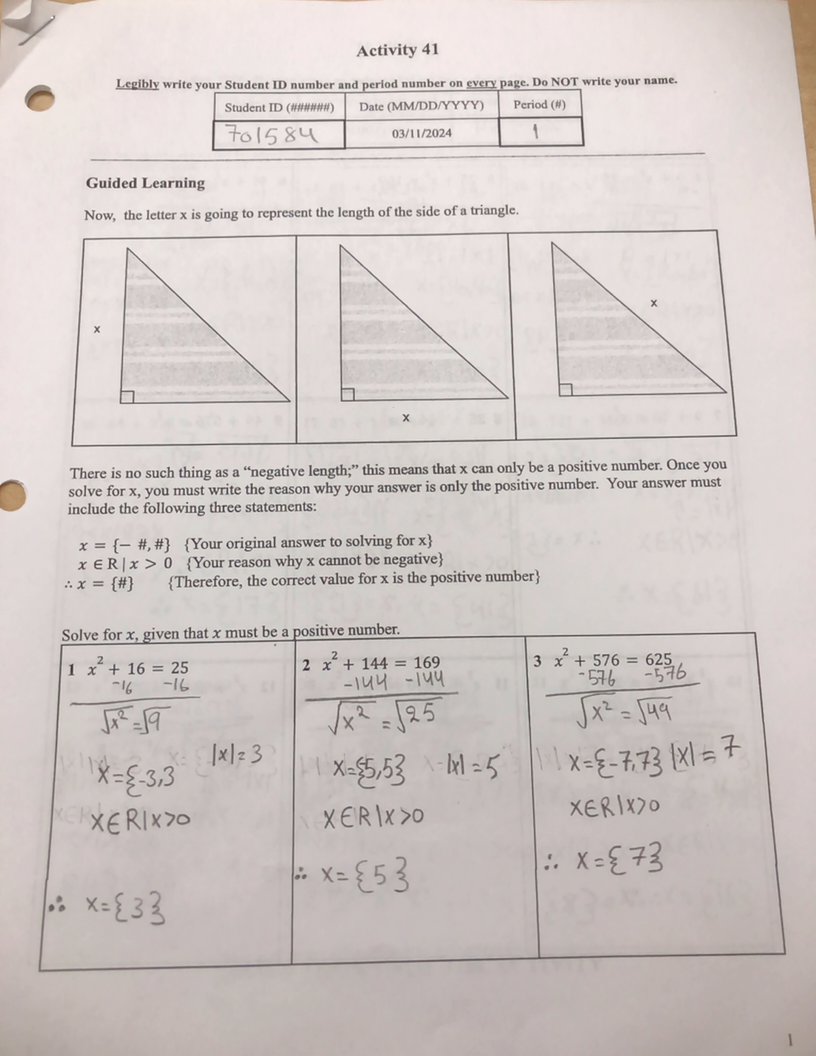 Activity 41
Legibly write your Student ID number and period number on every page. Do NOT write your name.
Student ID (######) Date (MM/DD/YYYY) Period (#)
701584 03/11/2024 1
Guided Learning
Now, the letter x is going to represent the length of the side of a triangle.
x
x
x
There is no such thing as a “negative length;” this means that x can only be a positive number. Once you
solve for x, you must write the reason why your answer is only the positive number. Your answer must
include the following three statements:
x = {− #, #} {Your original answer to solving for x}
x ∈ R | x > 0 {Your reason why x cannot be negative}
∴ x = {#} {Therefore, the correct value for x is the positive number}
Solve for x, given that x must be a positive number.
1 x² + 16 = 25
-16 -16
√x² = √9
|x| = 3
x={-3,3
x∈R|x>0
∴ x={3}
2 x² + 144 = 169
-144 -144
√x² = √25
x={5,5} |x| = 5
x∈R|x>0
∴ x={5}
3 x² + 576 = 625
-576 -576
√x² = √49
x={-7,7} |x| = 7
x∈R|x>0
∴ x={7}
1